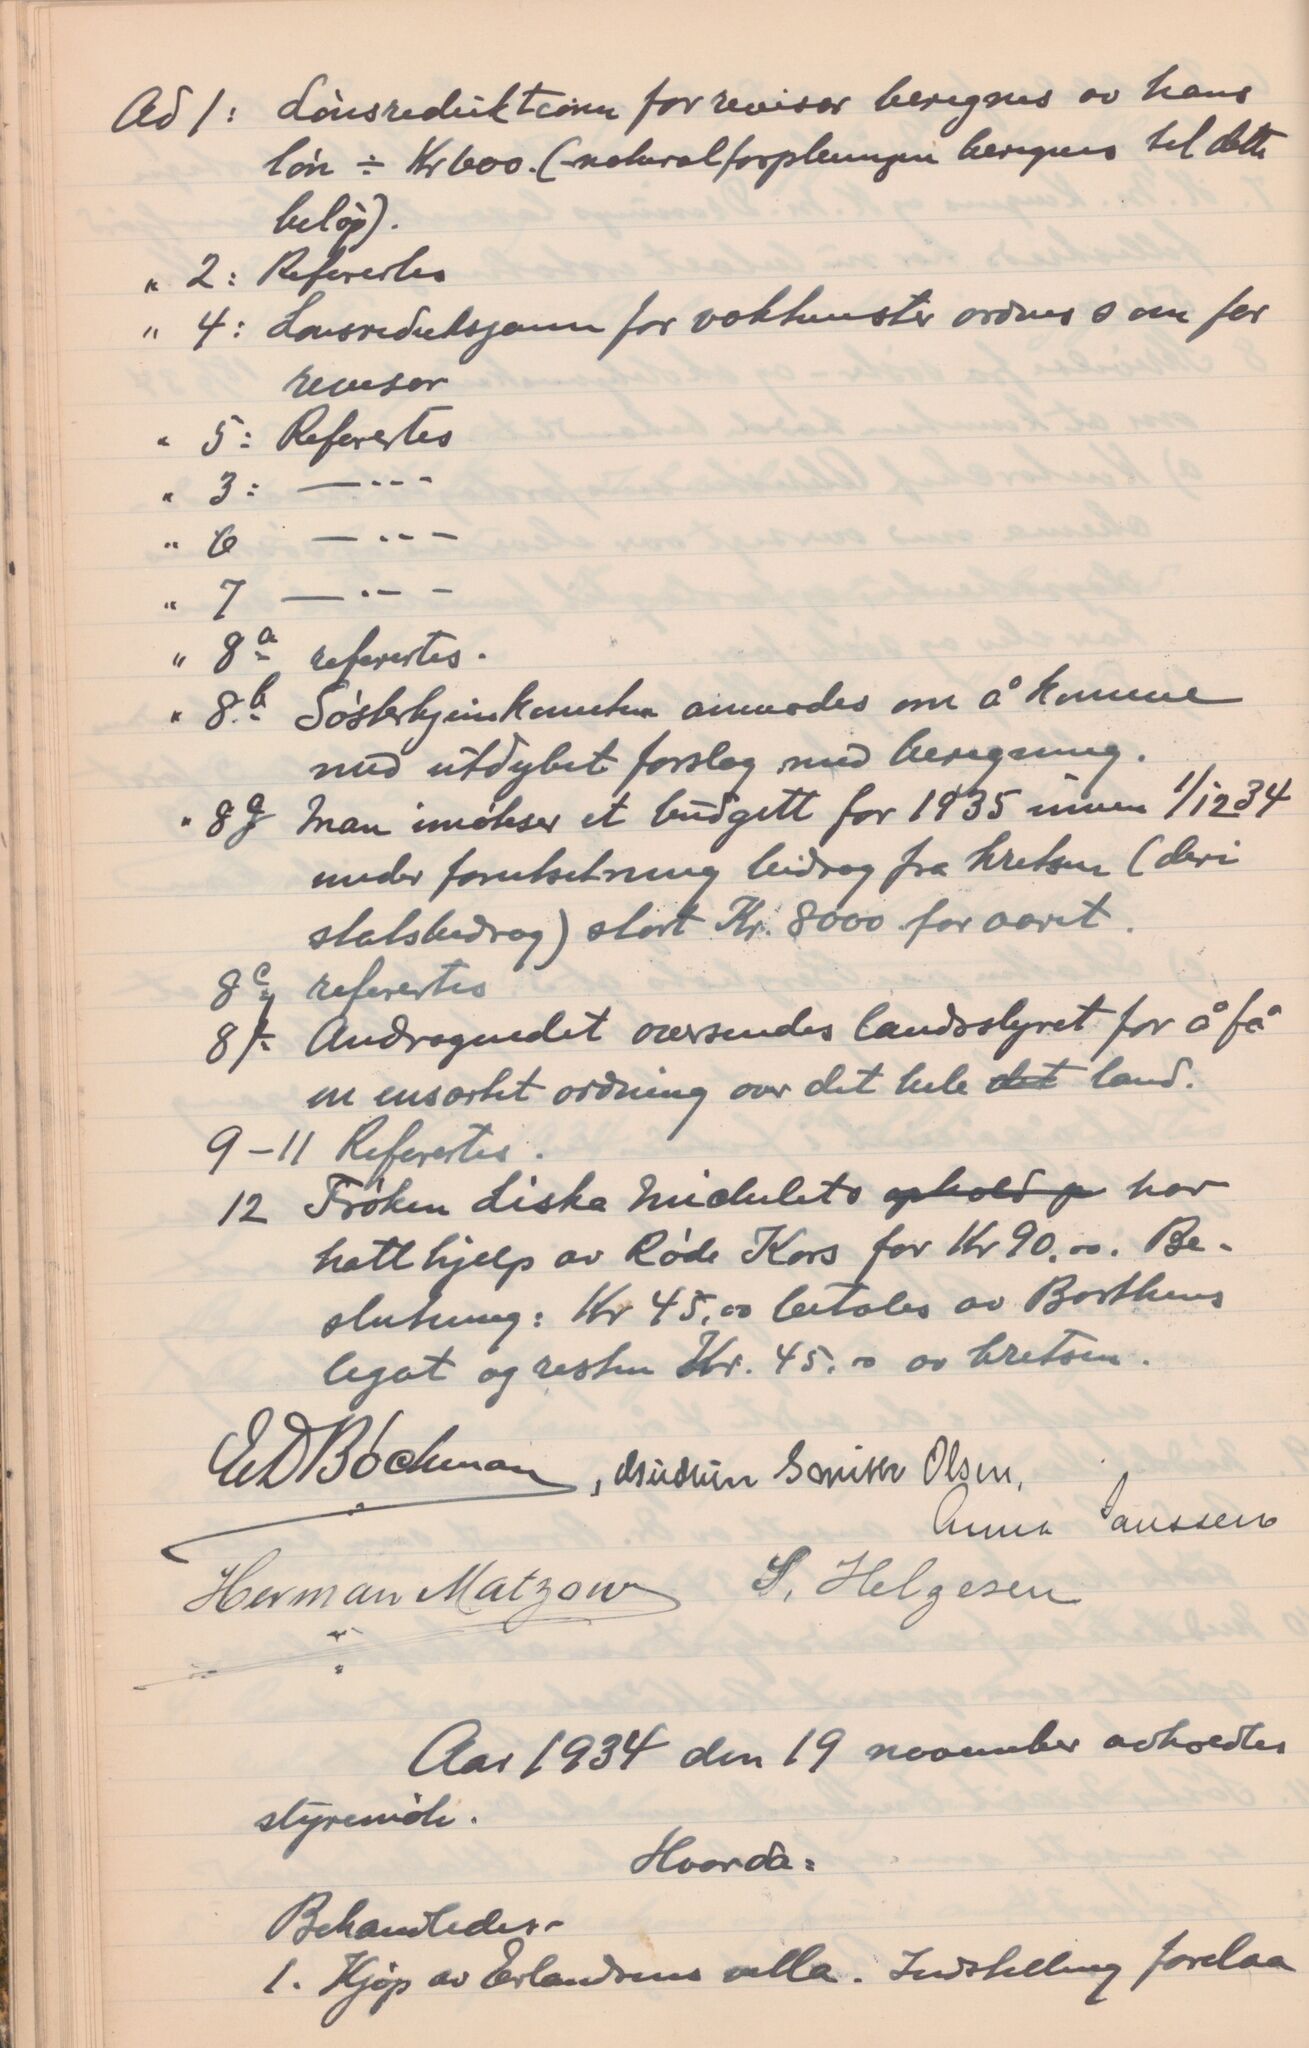 Ad 1: Lönsreduktionen for revisor beregnes av hans
lön ÷ Kr 600. (naturalforpleiningen beregnes til dette
beløp).
" 2: Refereertes
" 4: Lønsreduksjonen for vaktmester ordnes som for
revisor
" 5: Referertes
" 3: — - - -
" 6 — - - -
" 7 — - - -
" 8a referertes.
" 8b Søsterhjemkomiteen anmodes om å komme
med utdybet forslag med beregning.
" 8g Man imøteser et budgett for 1935 innen 1/12 34
under forutsetning bidrag fra kretsen (deri
statsbidrag) stort Kr. 8000 for aaret.
8c referertes
8f Andragendet oversendes landsstyret for å få
en ensartet ordning over det hele det land.
9-11 Referertes.
12 Frøken Liska ophold p har
hatt hjelp av Røde Kors for Kr 90.00. Be-
slutning: Kr 45.00 betales av Barthens
legat og resten Kr. 45.00 av kretsen.
E D Bøckman, Olsen,
Anna Janssen
Herman Matzow S. Helgesen
Aar 1934 den 19 november avholdtes
styremøte.
Hvorda:
Behandledes:
1. Kjøp av Erlandsens villa. Indstilling forelaa